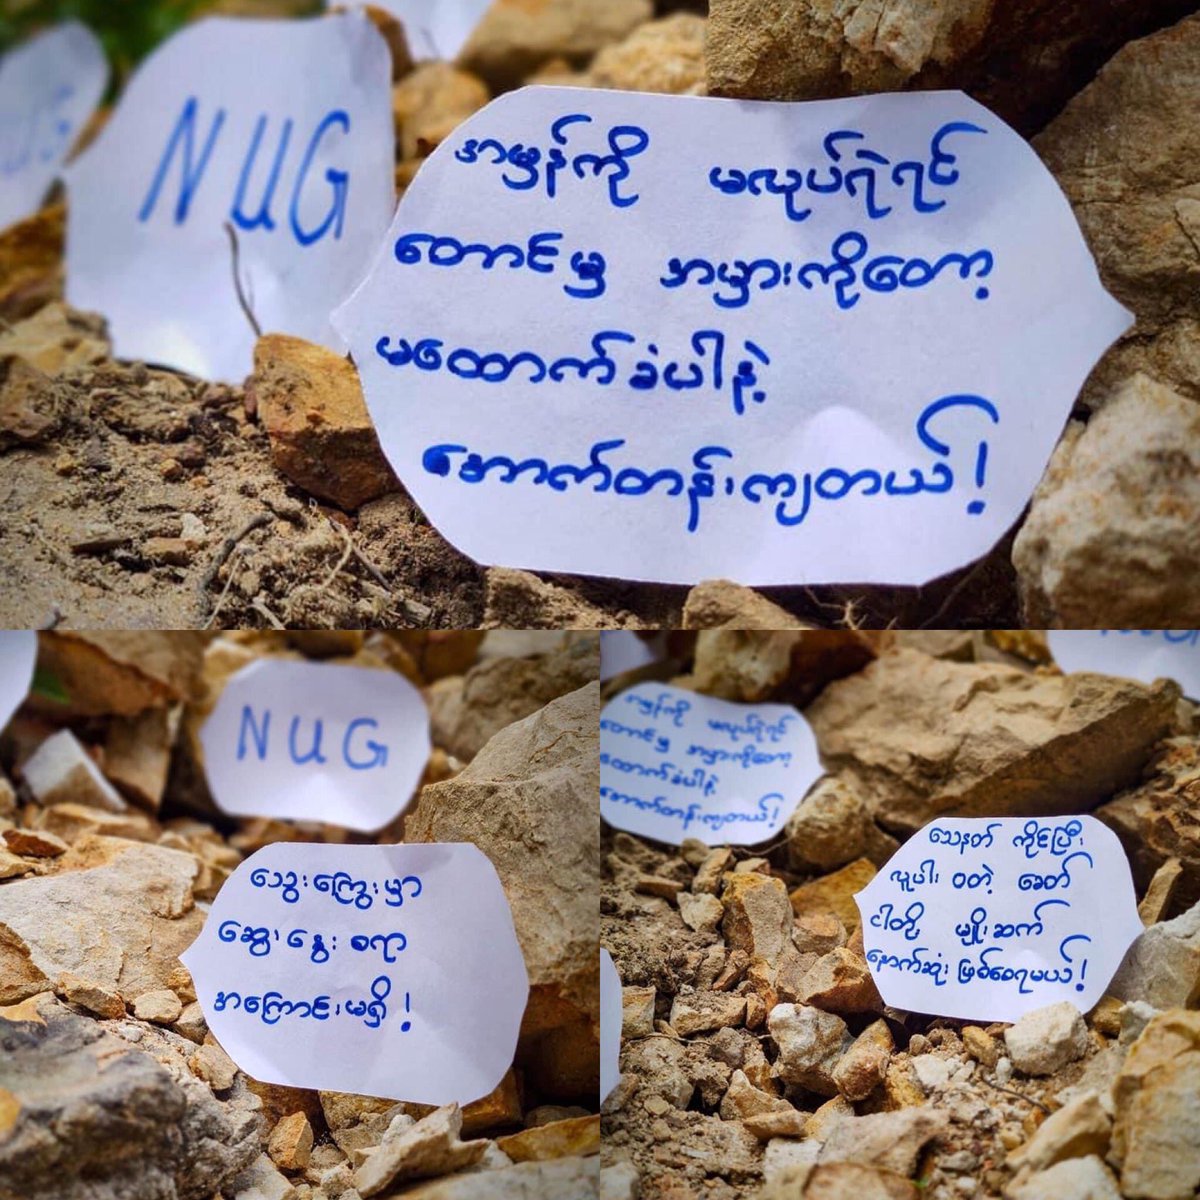 NUG
အမှန်ကို မလုပ်ရဲရင်
တောင်မှ အမှားကိုတော့
မထောက်ခံပါနဲ့
အောက်တန်းကျတယ်!
NUG
သွေးကြွေးမှာ
ဆွေးနွေးစရာ
အကြောင်းမရှိ!
အမှန်ကို မလုပ်ရဲရင်
တောင်မှ အမှားကိုတော့
မထောက်ခံပါနဲ့
အောက်တန်းကျတယ်!
သေနတ် ကိုင်ပြီး
လူပါး ဝတဲ့ ခေတ်
ငါတို့ မျိုးဆက်
နောက်ဆုံး ဖြစ်စေရမယ်!